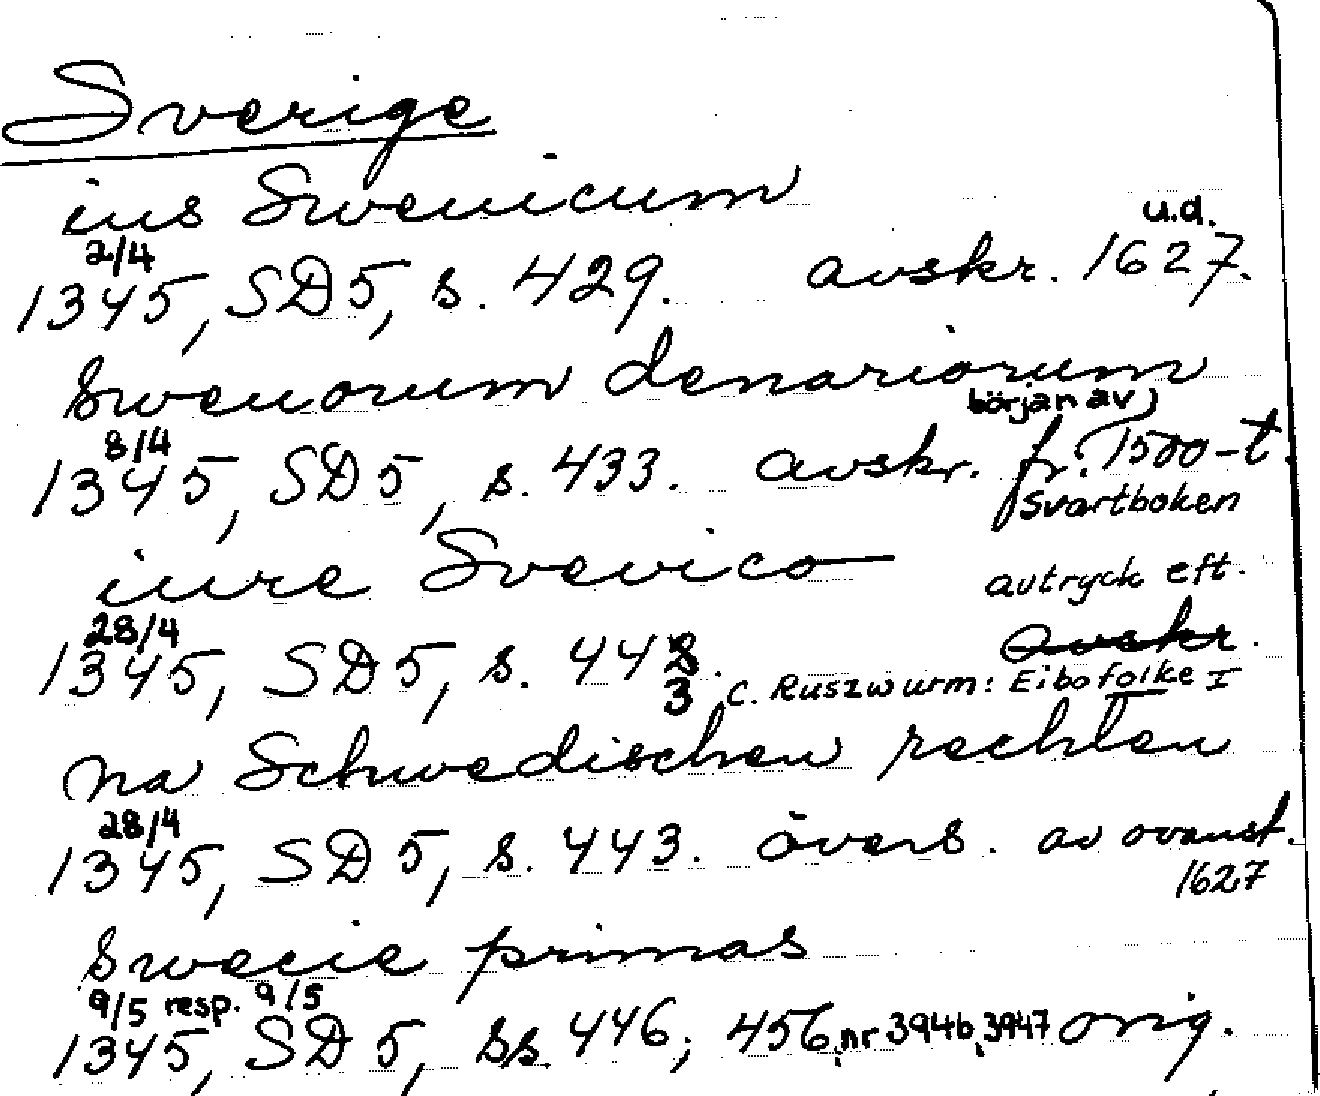 Sverige
ius Swenicum
u.d.
2/4
1345, SD 5, s. 429. avskr. 1627.
Swenorum denariorum
början av
8/4
1345, SD 5, s. 433. avskr. fr. 1500-t.
Svartboken
iure Svevico
avtryck eft.
28/4
1345, SD 5, s. 443. avskr.
3 C. Ruszwurm: Eibofolke I
na Schwedischen rechten
28/4
1345, SD 5, s. 443. övers. av ovanst.
1627
Swecie primas
9/5 resp. 9/5
1345, SD 5, ss. 446, 456, nr 3946, 3947 orig.